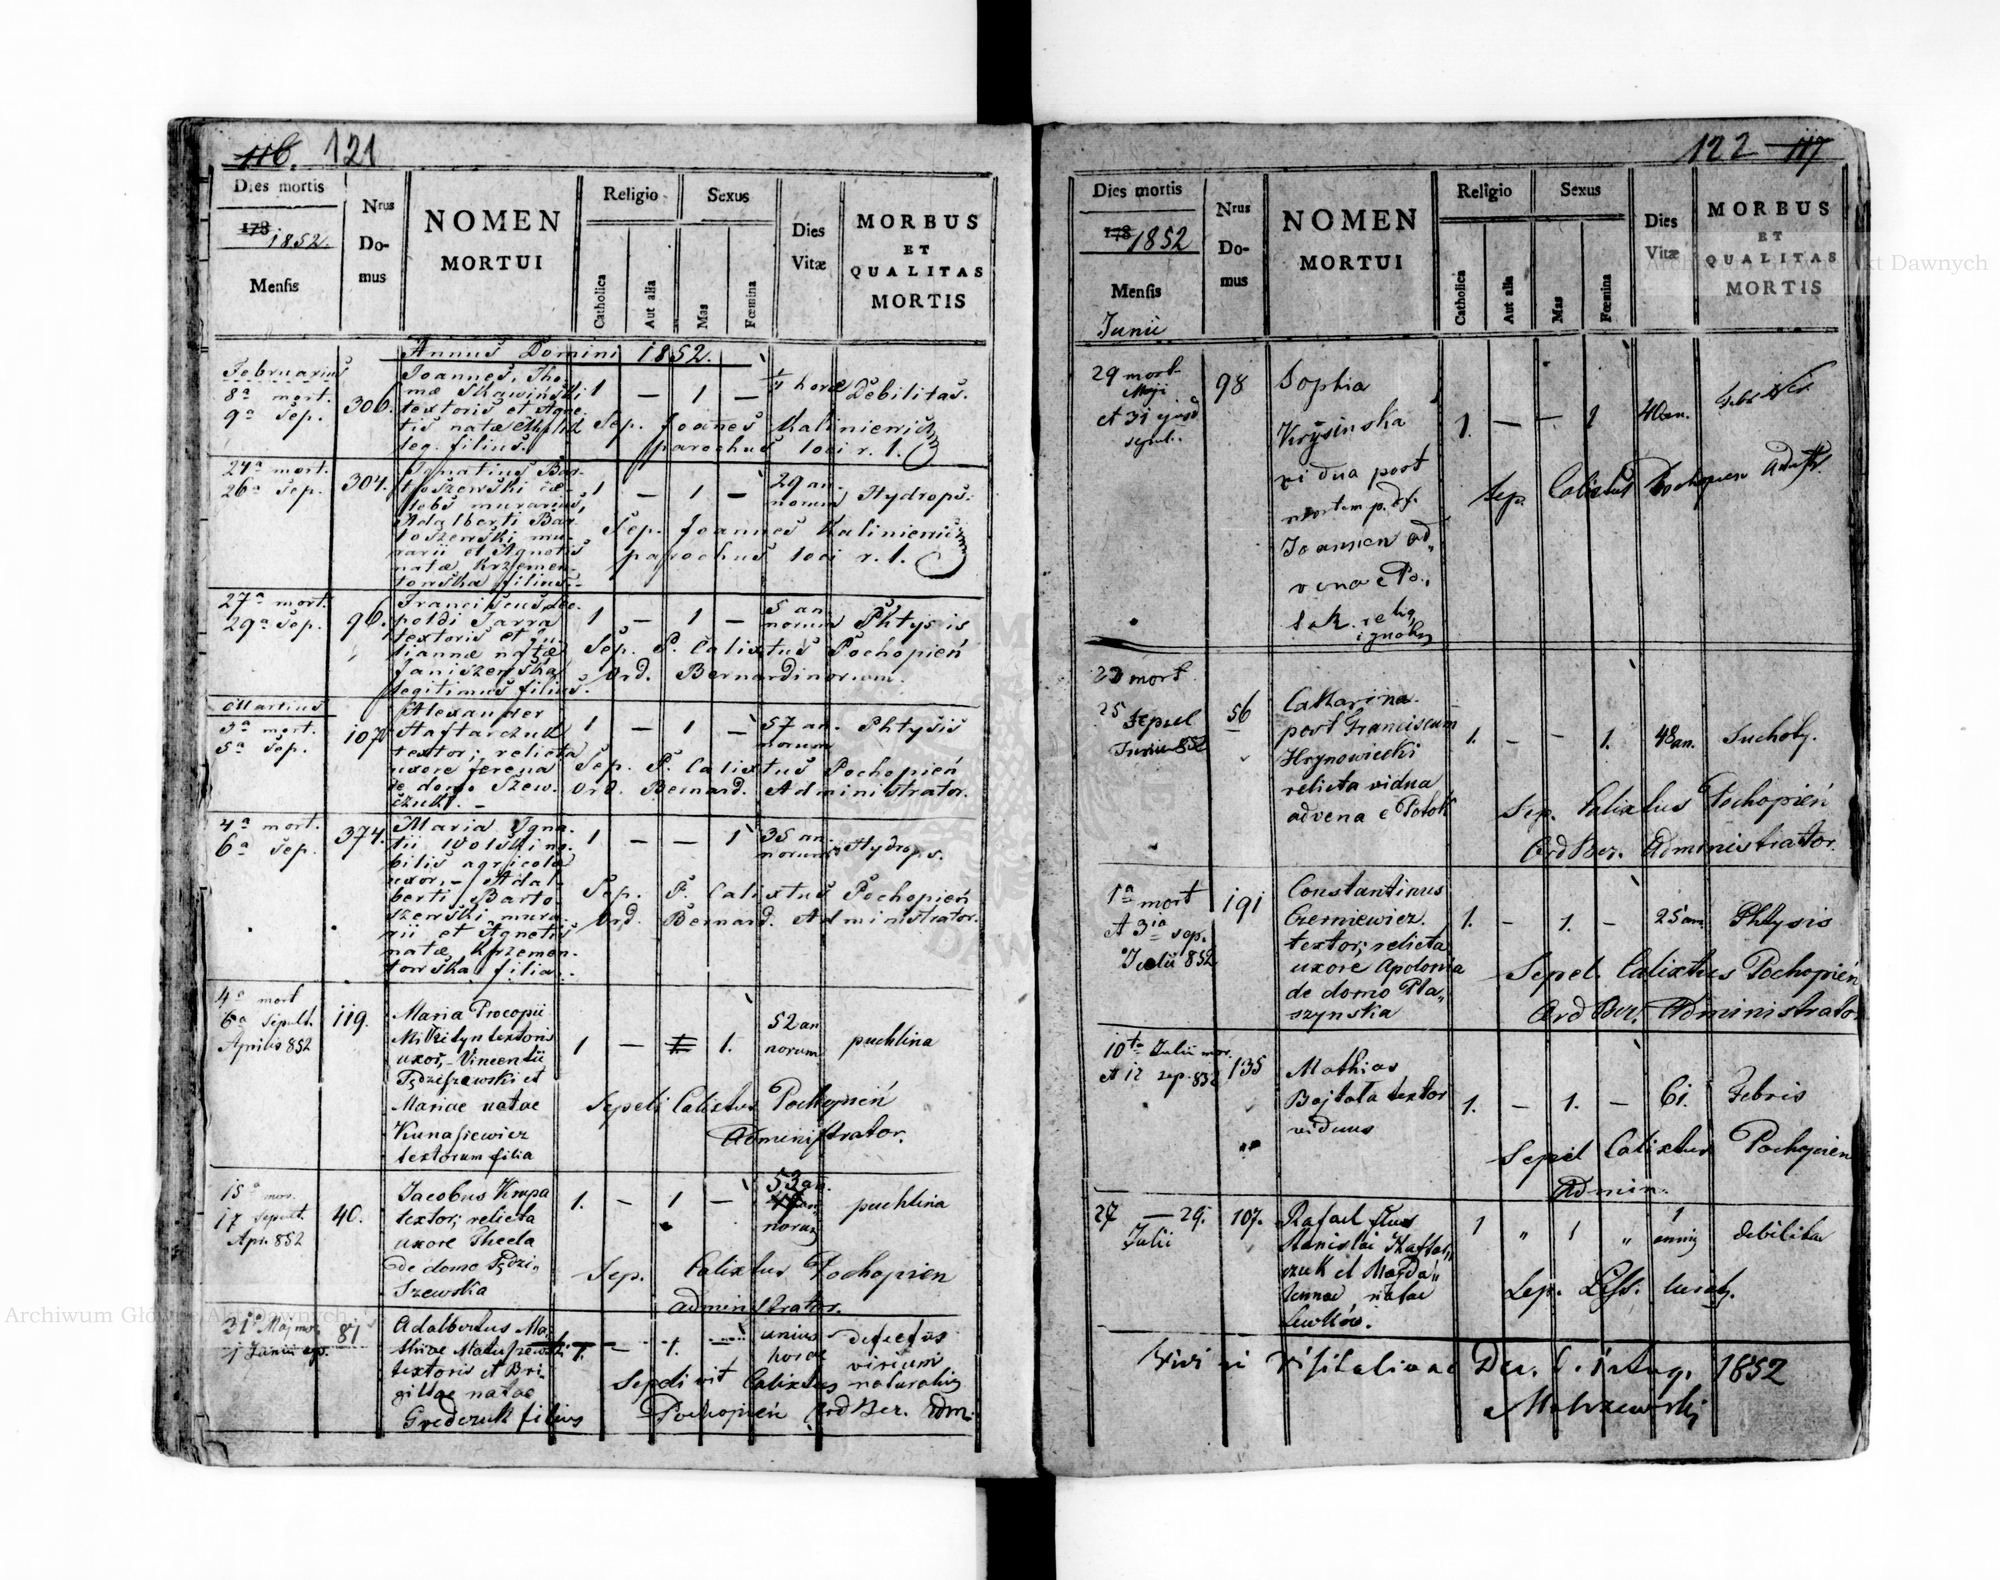 116. 121
Dies mortis
178 1852.
Mensis
Nrus
Do-
mus
NOMEN
MORTUI
Religio
Catholica
Aut alia
Sexus
Mas
Fœmina
Dies
Vitæ
MORBUS
ET
QUALITAS
MORTIS
Annus Domini 1852.
Februarius
8ª mort.
9ª Sep.
306.
Joannes, Tho-
mæ Skawiński
textoris et Agne-
tis natæ
leg. filius.
1 — 1 —
horæ
Debilitas.
Sep. Joanes Kaliniewicz
parochus loci r. l.
24ª mort.
26ª Sep.
304.
Ignatius Bar-
toszewski cæ-
lebs murarius,
Adalberti Bar-
toszewski mu-
rarii et Agnetis
natæ Krzemen-
towska filius.
1 — 1 —
29 an-
norum
Hydrops.
Sep. Joannes Kaliniewicz
parochus loci r. l.
27ª mort.
29ª Sep.
96.
Franciscus, Leo-
poldi Jarra
textoris et Ju-
liannæ natæ
Janiszewska
legitimus filius.
1 — 1 —
5 an-
norum
Phtysis
Sep. P. Calixtus Pochopień
Ord. Bernardinorum.
Martius
3ª mort.
5ª Sep.
107.
Alexander
Haftarczuk
textor; relicta
uxore Ferena
de domo Szew-
czuki. —
1 — 1 —
57 an-
norum
Phtysis
Sep. P. Calixtus Pochopień
Ord. Bernard. Administrator.
4ª mort.
6ª Sep.
374.
Maria Igna-
tii Wolski no-
bilis agricolæ
uxor, — Adal-
berti Barto-
szewski mura-
rii et Agnetis
natæ Krzemen-
towska filia.
1 — — 1
35 an-
norum
Hydrops.
Sep. P. Calixtus Pochopień
Ord. Bernard. Administrator.
4ª mort
6ª Sepult.
Aprilis 852
119.
Maria Procopii
Mikityn textoris
uxor, — Vincentii
Tędziszewski et
Mariae natae
Kunasiewicz
textorum filia
1 — 1.
52 an
norum
puchlina
Sepeli Calixtus Pochopień
Administrator.
15ª mor.
17 Sepult.
Apr. 852
40.
Jacobus Kmpa
textor; relicta
uxore Thecla
de domo Tędzi-
szewska
1. — 1 —
53 an.
norum
puchlina
Sep. Calixtus Pochopien
administrator.
31ª Maj mor.
Junii
81
Adalbertus Ma-
thiae
textoris et Bri-
gittae natae
Gredczuk filius
1. — 1. —
unius
horae
defectus
virium
naturalis
Sepelivit Calixtus
Pochopień Ord Ber. Adm.
122 117
Dies mortis
178 1852
Mensis
Junii
Nrus
Do-
mus
NOMEN
MORTUI
Religio
Catholica
Aut alia
Sexus
Mas
Fœmina
Dies
Vitæ
MORBUS
ET
QUALITAS
MORTIS
29 mort
Maji
et 31 ejusd
sepul.
98
Sophia
Krysinska
vidua post
mortem p. def.
Joannem ad-
vena e Po-
tok. relig
1. — — 1
40 an.
Sep. Calixtus Pochopien
23 mort
25 Sepul
Junii 852
56
Catharina
post Franciscum
Hrynowiecki
relicta vidua
advena e Potok
1. — — 1.
48 an.
Suchoty.
Sep. Calixtus Pochopień
Ord Ber. Administrator.
1ª mort
et 3ia sep.
Julii 852
191
Constantinus
Czerniewicz
textor; relicta
uxore Apolonia
de domo Pta-
szynska
1. — 1. —
25 ann
Phtysis
Sepel. Calixtus Pochopień
Ord Ber. Administrator
10ta Julii mor.
et 12 sep. 852
135
Mathias
Bajtala textor
viduus
1. — 1. —
61.
Febris
Sepel Calixtus Pochopień
Admin.
27 — 29.
Julii
107.
Rafael filius
Stanislai Haftar-
czuk et Magda-
lennae natae
Lewków.
1 „ 1 „
1
annis
debilitas
Sep.
Vidi in Visitatione Dec. d. 1 Aug. 1852